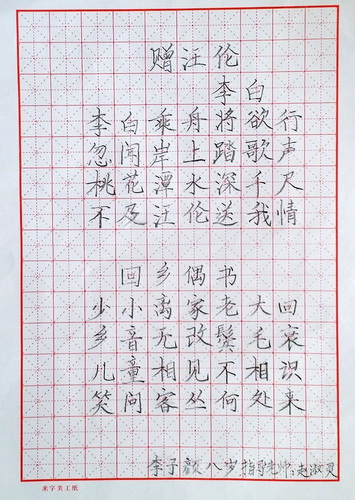 赠汪伦
李白
李白乘舟将欲行
忽闻岸上踏歌声
桃花潭水深千尺
不及汪伦送我情
回乡偶书
少小离家老大回
乡音无改鬓毛衰
儿童相见不相识
笑问客丛何处来
李子颜八岁指导老师:赵淑灵
米字美工纸